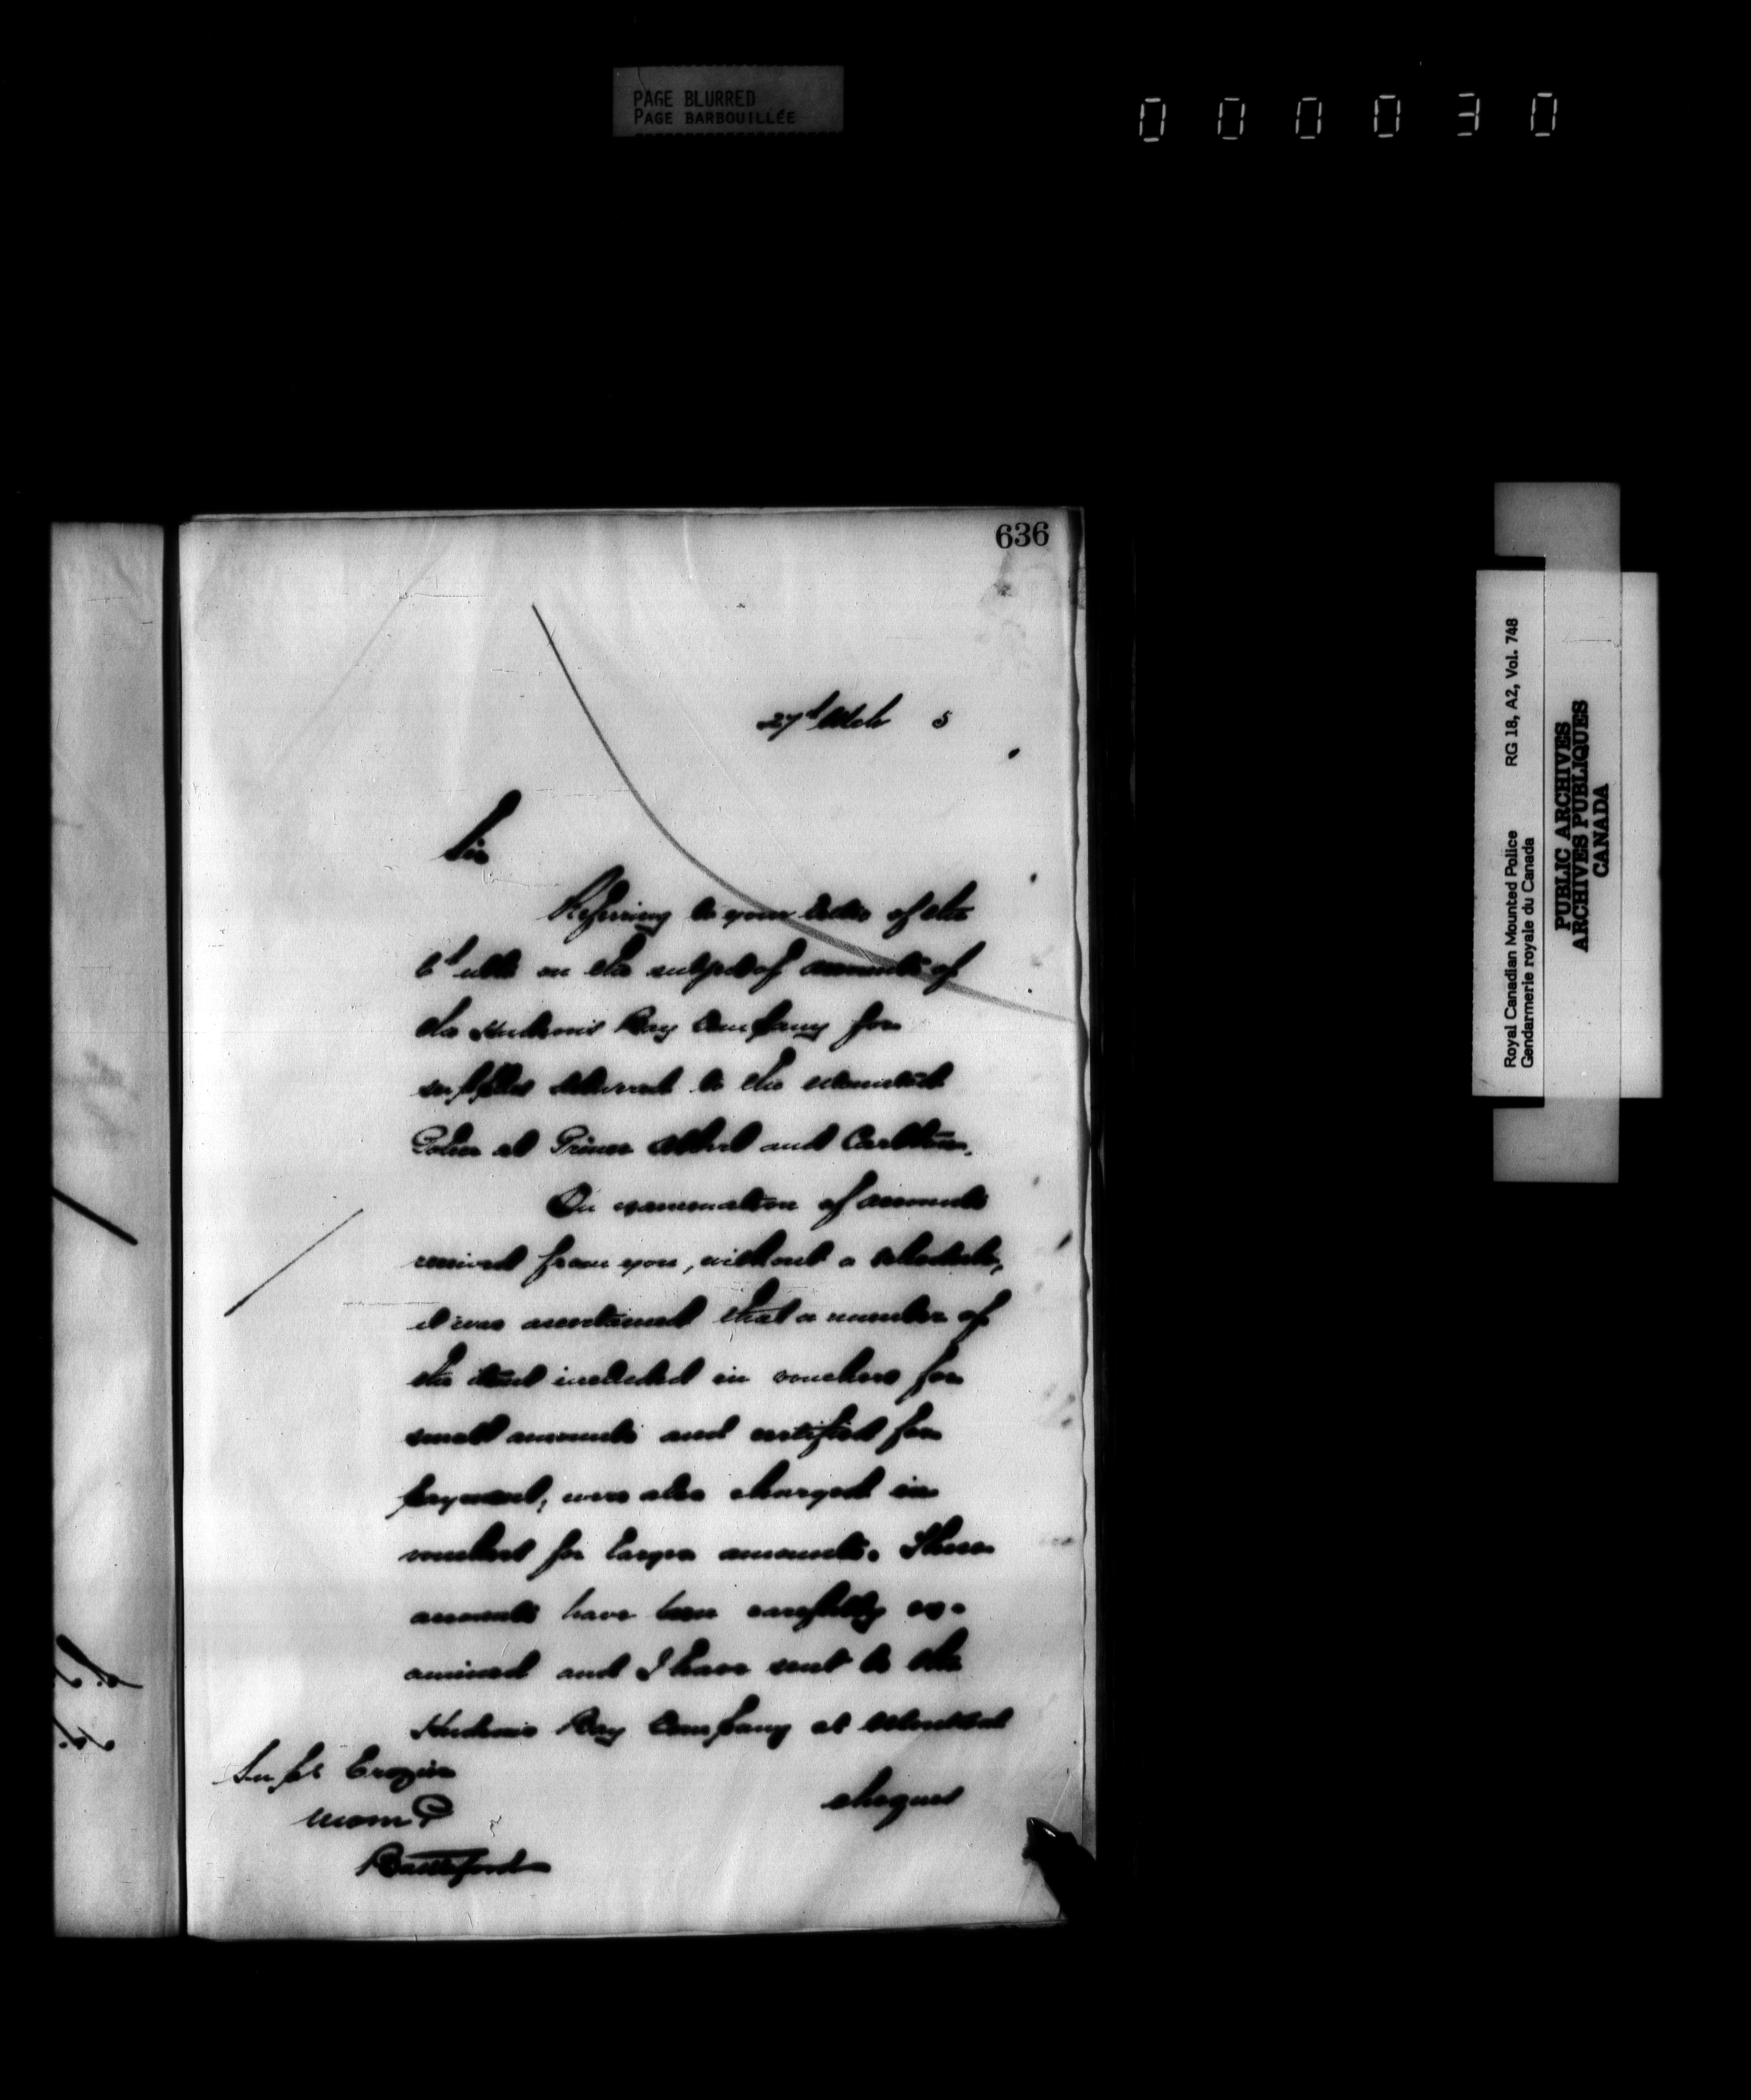 PAGE BLURRED
PAGE BARBOUILLÉE
000030
636
27th Mch 5
Sir
Referring to your letter of the
6th ulto on the subject of accounts of
the Hudson's Bay Company for
supplies delivered to the Mounted
Police at Prince Albert and Carlton.
On examination of accounts
received from you, without a schedule,
it was ascertained that a number of
the items included in vouchers for
small amounts and certified for
payment, were also charged in
vouchers for larger amounts. These
accounts have been carefully ex-
amined and I have sent to the
Hudson's Bay Company at Montreal
cheques
Supt Crozier
NWMP
Battleford
Royal Canadian Mounted Police RG 18, A2, Vol. 748
Gendarmerie royale du Canada
PUBLIC ARCHIVES
ARCHIVES PUBLIQUES
CANADA